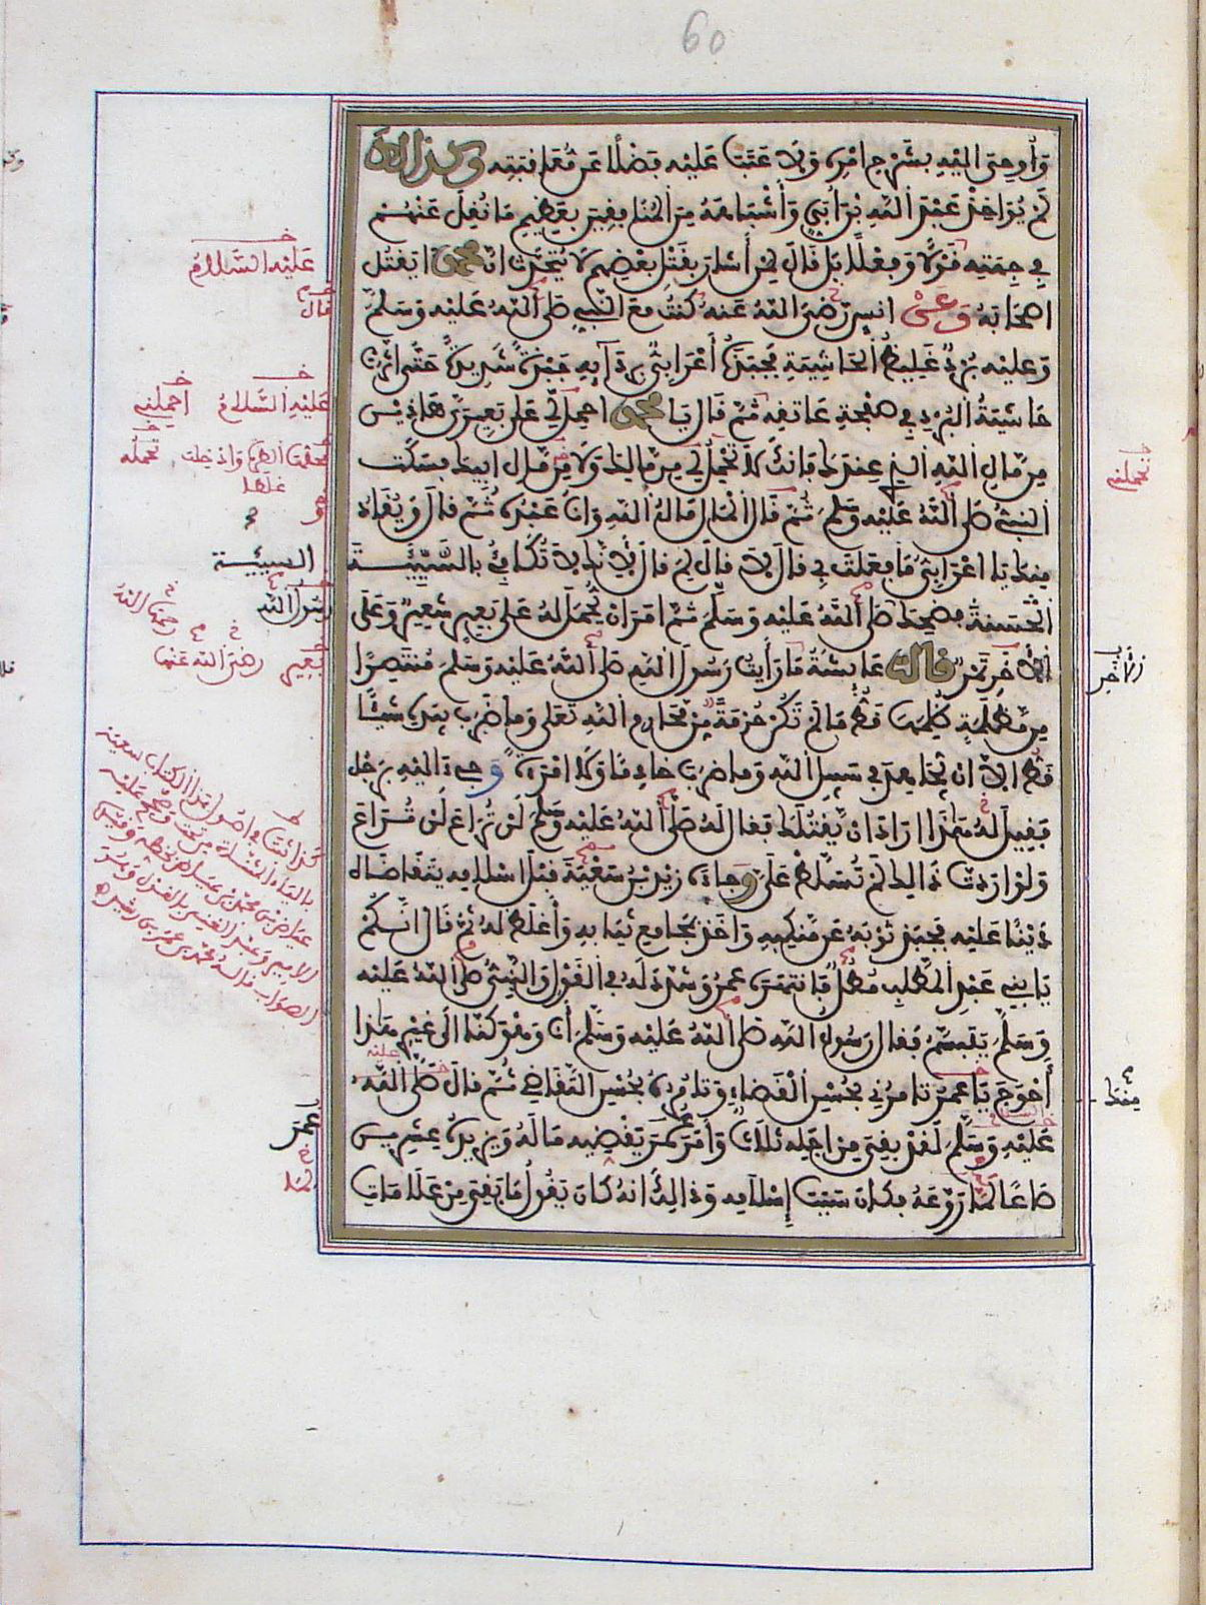 60
وَأُوحِيَ إِلَيْهِ بِشَرْحِ أَمْرِهِ وَلَا عَتَبَ عَلَيْهِ فَضْلًا عَنْ مُعَاقَبَتِهِ وَكَذَالِكَ
لَمْ يُؤَاخِذْ عَبْدَ اللهِ بْنَ أُبَيٍّ وَأَشْبَاهَهُ مِنَ الْمُنَافِقِينَ بِعَظِيمِ مَا نُقِلَ عَنْهُمْ
فِي جِهَتِهِ قَوْلًا وَفِعْلًا بَلْ قَالَ لِمَنْ أَشَارَ بِقَتْلِ بَعْضِهِمْ لَا يُتَحَدَّثُ أَنَّ مُحَمَّدًا يَقْتُلُ
أَصْحَابَهُ وَعَنْ أَنَسٍ رَضِيَ اللهُ عَنْهُ كُنْتُ مَعَ النَّبِيِّ صَلَّى اللهُ عَلَيْهِ وَسَلَّمَ
وَعَلَيْهِ بُرْدٌ غَلِيظُ الْحَاشِيَةِ فَجَبَذَهُ أَعْرَابِيٌّ بِرِدَائِهِ جَبْذَةً شَدِيدَةً حَتَّى أَثَّرَتْ
حَاشِيَةُ الْبُرْدِ فِي صَفْحَةِ عَاتِقِهِ ثُمَّ قَالَ يَا مُحَمَّدُ احْمِلْ لِي عَلَى بَعِيرَيَّ هَاذَيْنِ
مِنْ مَالِ اللهِ الَّذِي عِنْدَكَ فَإِنَّكَ لَا تَحْمِلُ لِي مِنْ مَالِكَ وَلَا مِنْ مَالِ أَبِيكَ فَسَكَتَ
النَّبِيُّ صَلَّى اللهُ عَلَيْهِ وَسَلَّمَ ثُمَّ قَالَ الْمَالُ مَالُ اللهِ وَأَنَا عَبْدُهُ ثُمَّ قَالَ وَيُقَادُ
مِنْكَ يَا أَعْرَابِيُّ مَا فَعَلْتَ بِي قَالَ لَا قَالَ لِمَ قَالَ لِأَنَّكَ لَا تُكَافِئُ بِالسَّيِّئَةِ
الْحَسَنَةَ فَضَحِكَ صَلَّى اللهُ عَلَيْهِ وَسَلَّمَ ثُمَّ أَمَرَ أَنْ يُحْمَلَ لَهُ عَلَى بَعِيرٍ شَعِيرٌ وَعَلَى
الْآخَرِ تَمْرٌ قَالَتْ عَائِشَةُ مَا رَأَيْتُ رَسُولَ اللهِ صَلَّى اللهُ عَلَيْهِ وَسَلَّمَ مُنْتَصِرًا
مِنْ مَظْلَمَةٍ ظُلِمَهَا قَطُّ مَا لَمْ تَكُنْ حُرْمَةً مِنْ مَحَارِمِ اللهِ تَعَلَى وَمَا ضَرَبَ بِيَدِهِ شَيْئًا
قَطُّ إِلَّا أَنْ يُجَاهِدَ فِي سَبِيلِ اللهِ وَمَا ضَرَبَ خَادِمًا وَلَا امْرَأَةً وَجِيءَ إِلَيْهِ بِرَجُلٍ
فَقِيلَ لَهُ هَذَا أَرَادَ أَنْ يَقْتُلَكَ فَقَالَ لَهُ صَلَّى اللهُ عَلَيْهِ وَسَلَّمَ لَنْ تُرَاعَ لَنْ تُرَاعَ
وَلَوْ أَرَدْتَ ذَالِكَ لَمْ تُسَلَّطْ عَلَيَّ وَجَاءَهُ زَيْدُ بْنُ سَعْنَةَ قَبْلَ إِسْلَامِهِ يَتَقَاضَاهُ
دَيْنًا عَلَيْهِ فَجَبَذَ ثَوْبَهُ عَنْ مَنْكِبِهِ وَأَخَذَ بِمَجَامِعِ ثِيَابِهِ وَأَغْلَظَ لَهُ ثُمَّ قَالَ إِنَّكُمْ
يَا بَنِي عَبْدِ الْمُطَّلِبِ مُطْلٌ فَانْتَهَرَهُ عُمَرُ وَشَدَّدَ لَهُ فِي الْقَوْلِ وَالنَّبِيُّ صَلَّى اللهُ عَلَيْهِ
وَسَلَّمَ يَتَبَسَّمُ فَقَالَ رَسُولُ اللهِ صَلَّى اللهُ عَلَيْهِ وَسَلَّمَ أَنَا وَهُوَ كُنَّا إِلَى غَيْرِ هَذَا
أَحْوَجَ يَا عُمَرُ تَأْمُرُنِي بِحُسْنِ الْقَضَاءِ وَتَأْمُرُهُ بِحُسْنِ التَّقَاضِي ثُمَّ قَالَ صَلَّى اللهُ
عَلَيْهِ وَسَلَّمَ لَقَدْ بَقِيَ مِنْ أَجَلِهِ ثَلَاثٌ وَأَمَرَ عُمَرَ يَقْضِيهِ مَالَهُ وَيَزِيدُهُ عِشْرِينَ
صَاعًا لَمَّا رَوَّعَهُ فَكَانَ سَبَبَ إِسْلَامِهِ وَذَالِكَ أَنَّهُ كَانَ يَقُولُ مَا بَقِيَ مِنْ عَلَامَاتِ
عَلَيْهِ السَّلَامُ
قال
عَلَيْهِ السَّلَامُ احملني
تحملني
السيئة
رسول الله
بعير رضي الله عنها
الآخر
منك
يا عمر
لما